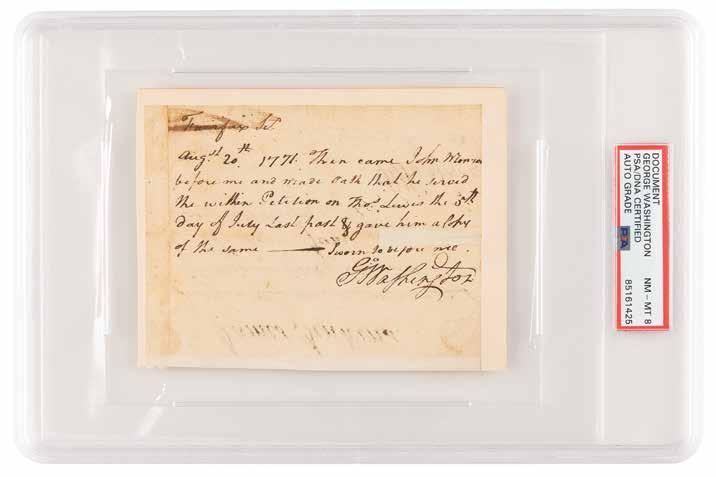 Fairfax Sc.
Augst 20th 1771. Then came John Monroe
before me and made Oath that he served
the within Petition on Thos. Lewis the 5th
day of July last past & gave him a Copy
of the same — Sworn to before me.
Go Washington
DOCUMENT
GEORGE WASHINGTON NM - MT 8
PSA/DNA CERTIFIED
AUTO GRADE PSA 85161425